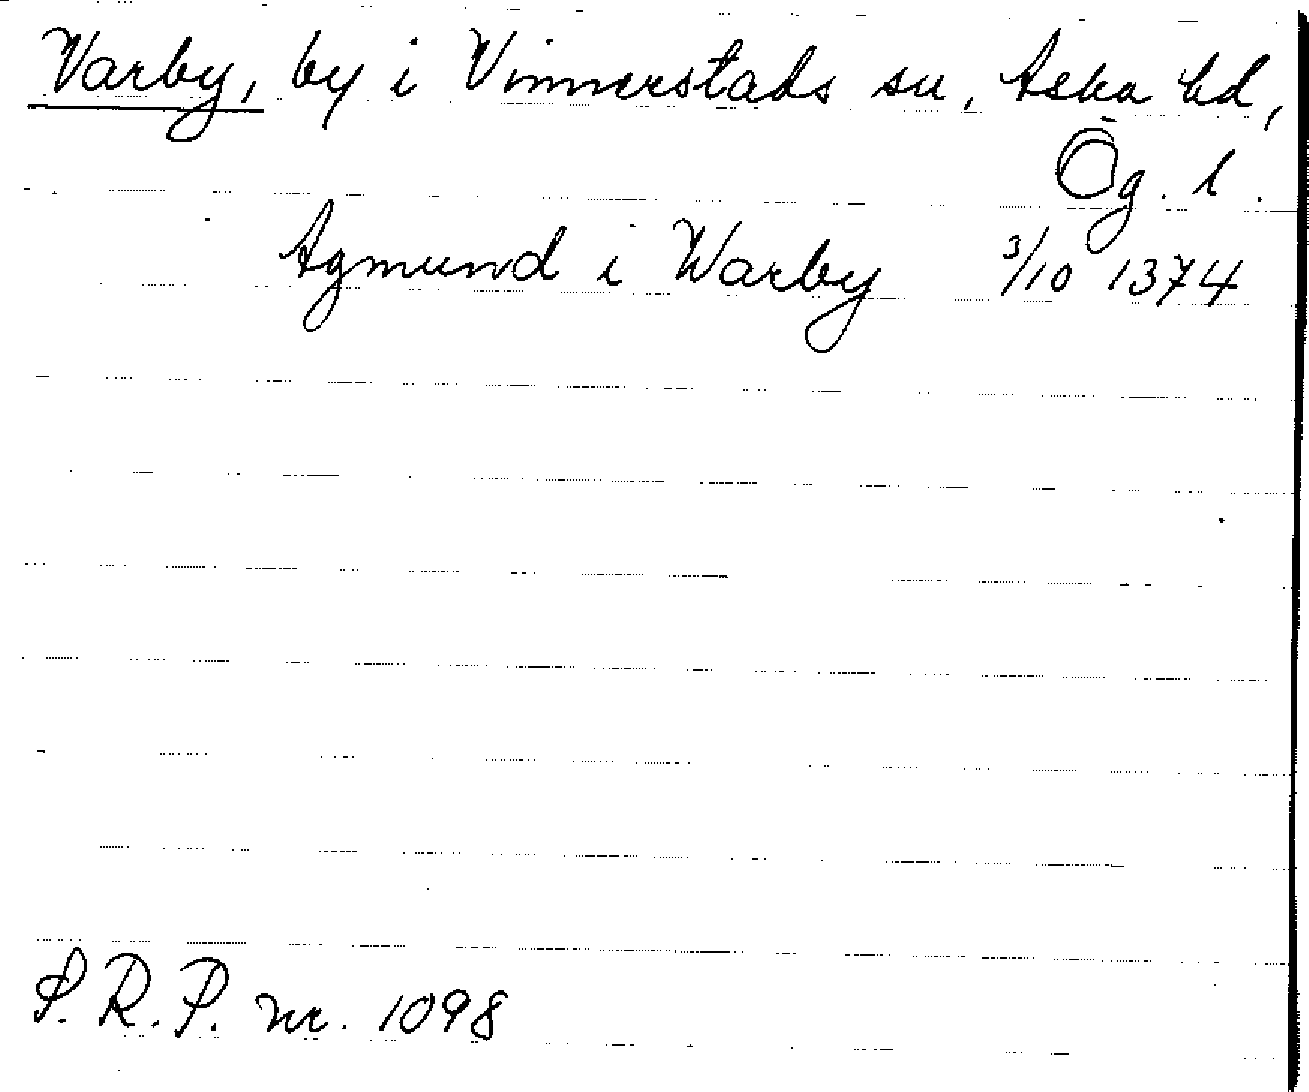 Varby, by i Vinnerstads sn, Aska hd,
Ög. l.
Agmund i Warby 3/10 1374
S.R.P. nr. 1098